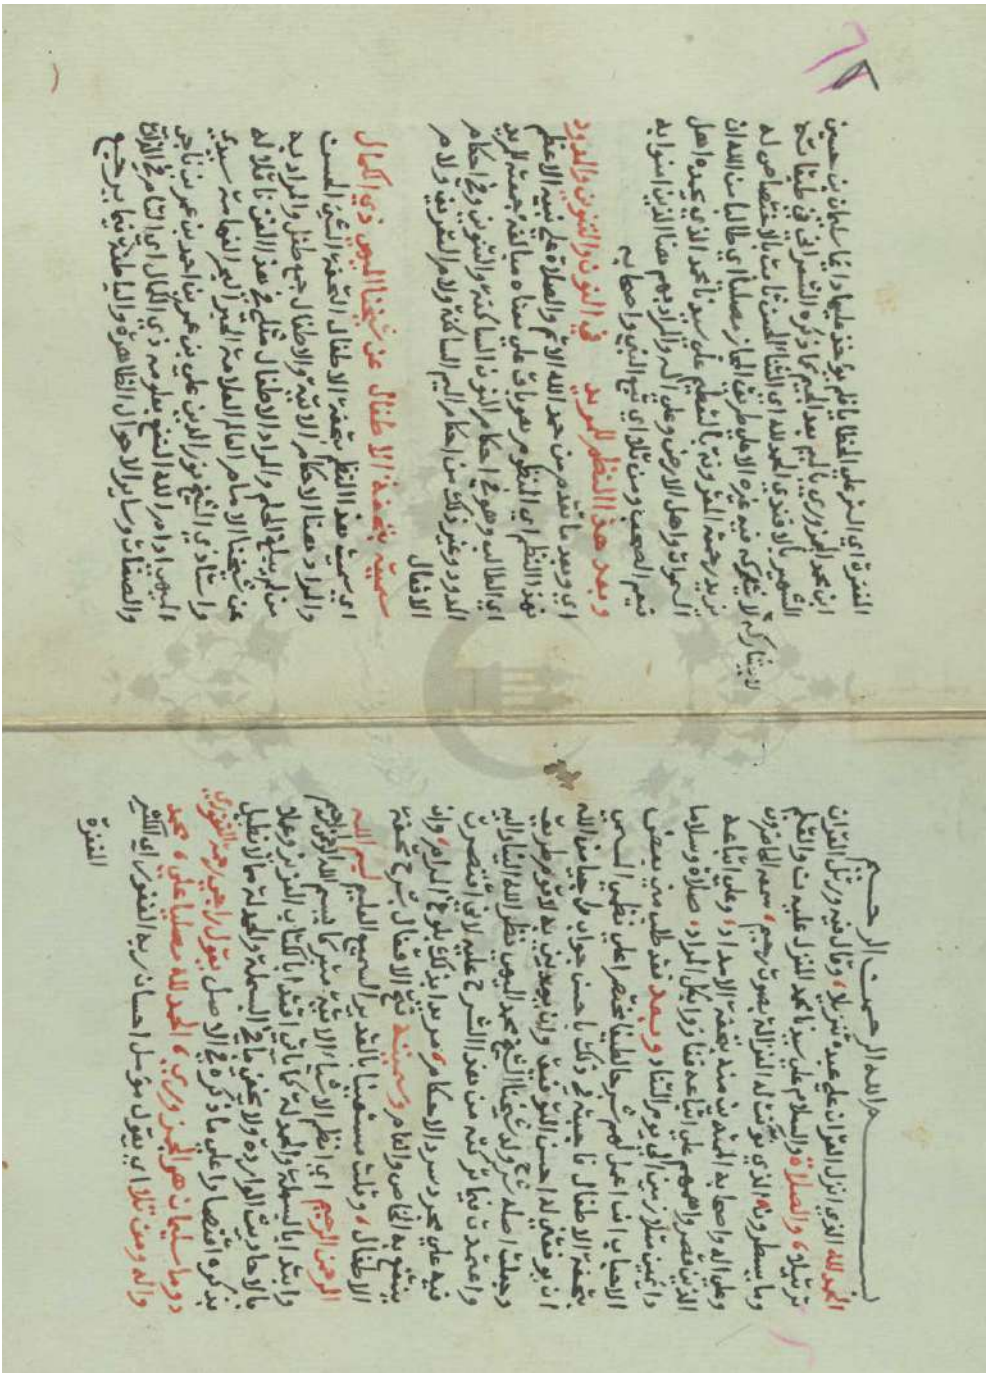 بسم الله الرحمن الرحيم
الحمد لله الذي انزل القران على عبده تنزيلا، وقال فيه ورتل القران
ترتيلا، والصلاة والسلام على سيدنا محمد المنزل عليه ن والقلم
وما يسطرون، الذي نونت له الغزالة بصوت رخيم، سمعه الحاضرون
وعلى اله واصحابه منه بتحفة الامداد، وعلى اتباعه
الذين قصروا هممهم على اتباعه ففازوا بكل المراد، صلاة وسلاما
دايمين متلازمين الى يوم التناد وبعد فقد طلب مني بعض
الاحباب ان اعمل لهم شرحا لطيفا مختصرا على نظمي المسمى
بتحفة الاطفال فاجبته في ذلك باحسن جواب، راجيا من الله
ان يوفقني له احسن التوفيق وان يهديني به لاقوم طريق
وجعلت اصله شرح ولد شيخنا الشيخ محمد الميهي نظر الله الينا واليه
واعتمدت فيما تركته من هذا الشرح عليه لاني اقتصرت
فيه على مجرد سرد الاحكام، مريدا بذلك بلوغ المرام، وان
ينتفع به الخاص والعام وسميته فتح الاقفال بشرح تحفة
الاطفال، وقلت مستعينا بالقدير السميع العليم بسم الله
الرحمن الرحيم اي انظم الاشيا الاتية متبركا ببسم الله الرحمن الرحيم
وابتدا بالبسملة والحمدلة كما ياتي اقتدا بالكتاب العزيز وعملا
بالاحاديث الواردة ولا يخفى ما في البسملة والحمدلة مما لا نطيل
بذكره اقتصارا على ما ذكره في الاصل يقول راجي رحمة الغفور
دوما سليمان هو الجمزوري، الحمد لله مصليا على، محمد
واله ومن تلا اي يقول مؤمل احسان ربه الغفور اي الكثير
المغفرة
المغفرة اي الستر على الخطايا فلم يؤخذ عليها دايما سليمان بن حسين
ابن محمد الجمزوري بالميم بعد الجيم كما ذكره الشعراني في طبقاته
الشهير بالافندي الحمد لله اي الثنا الحسن ثابت بالاختصاص له
لا يشاركه فيه غيره الا على طريق المجاز مصليا اي طالبا من الله ان
لا يشاركه
يزيد رحمته المقرونة بالتعظيم على سيدنا محمد الذي يحمده اهل
السموات واهل الارض وعلى اله والمراد بهم هنا الذين امنوا به
فيعم الصحب ومن تلا اي تبع النبي واصحابه
وبعد هذا النظم للمريد في النون والتنوين والمدود
اي وبعد ما تقدم من حمد الله الاتم والصلاة على نبيه الاعظم
فهذا النظم اي المنظوم فهو باق على معناه مبالغة جمعته للمريد
اي الطالب وهو في احكام النون الساكنة والتنوين وفي احكام
المدود وغير ذلك من احكام الميم الساكنة ولام التعريف ولام
الافعال
سميته بتحفة الاطفال عن شيخنا الميهي ذي الكمال
اي سميت هذا النظم بتحفة الاطفال التحفة الشي الحسن
والمراد هنا الاحكام الاتية والاطفال جمع طفل والمراد به
من لم يبلغ الحلم والمراد الاطفال مثلي في هذا الفن ناقلا له
عن شيخنا الامام العالم العلامة الحبر البحر الفهامة سيدي
واستاذي الشيخ نور الدين علي بن عمر بن احمد بن عمر بن ناجي
الميهي ادام الله النفع بعلومه ذي الكمال اي التام في الذات
والصفات وساير الاحوال الظاهرة والباطنة فيما يرجع